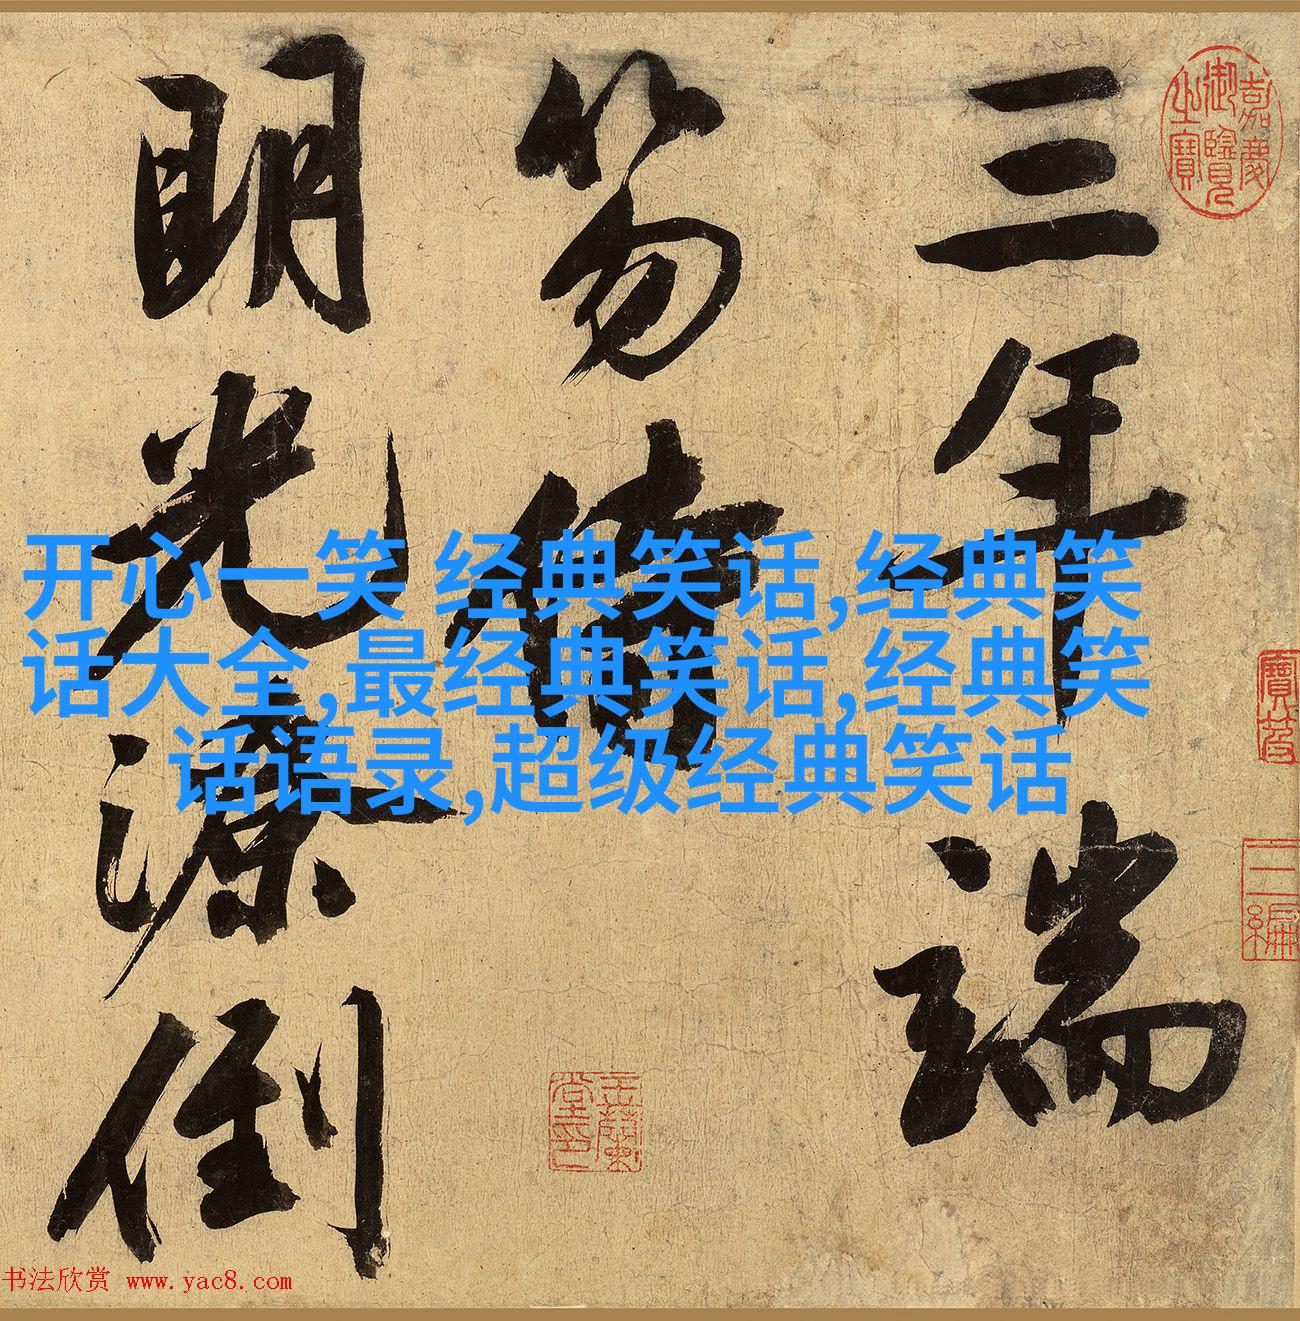 三年端
笏侍
明光潦倒
嘉慶御覽之寶
开心一笑 经典笑话,经典笑
话大全,最经典笑话,经典笑
话语录,超级经典笑话
书法欣赏 www.yac8.com